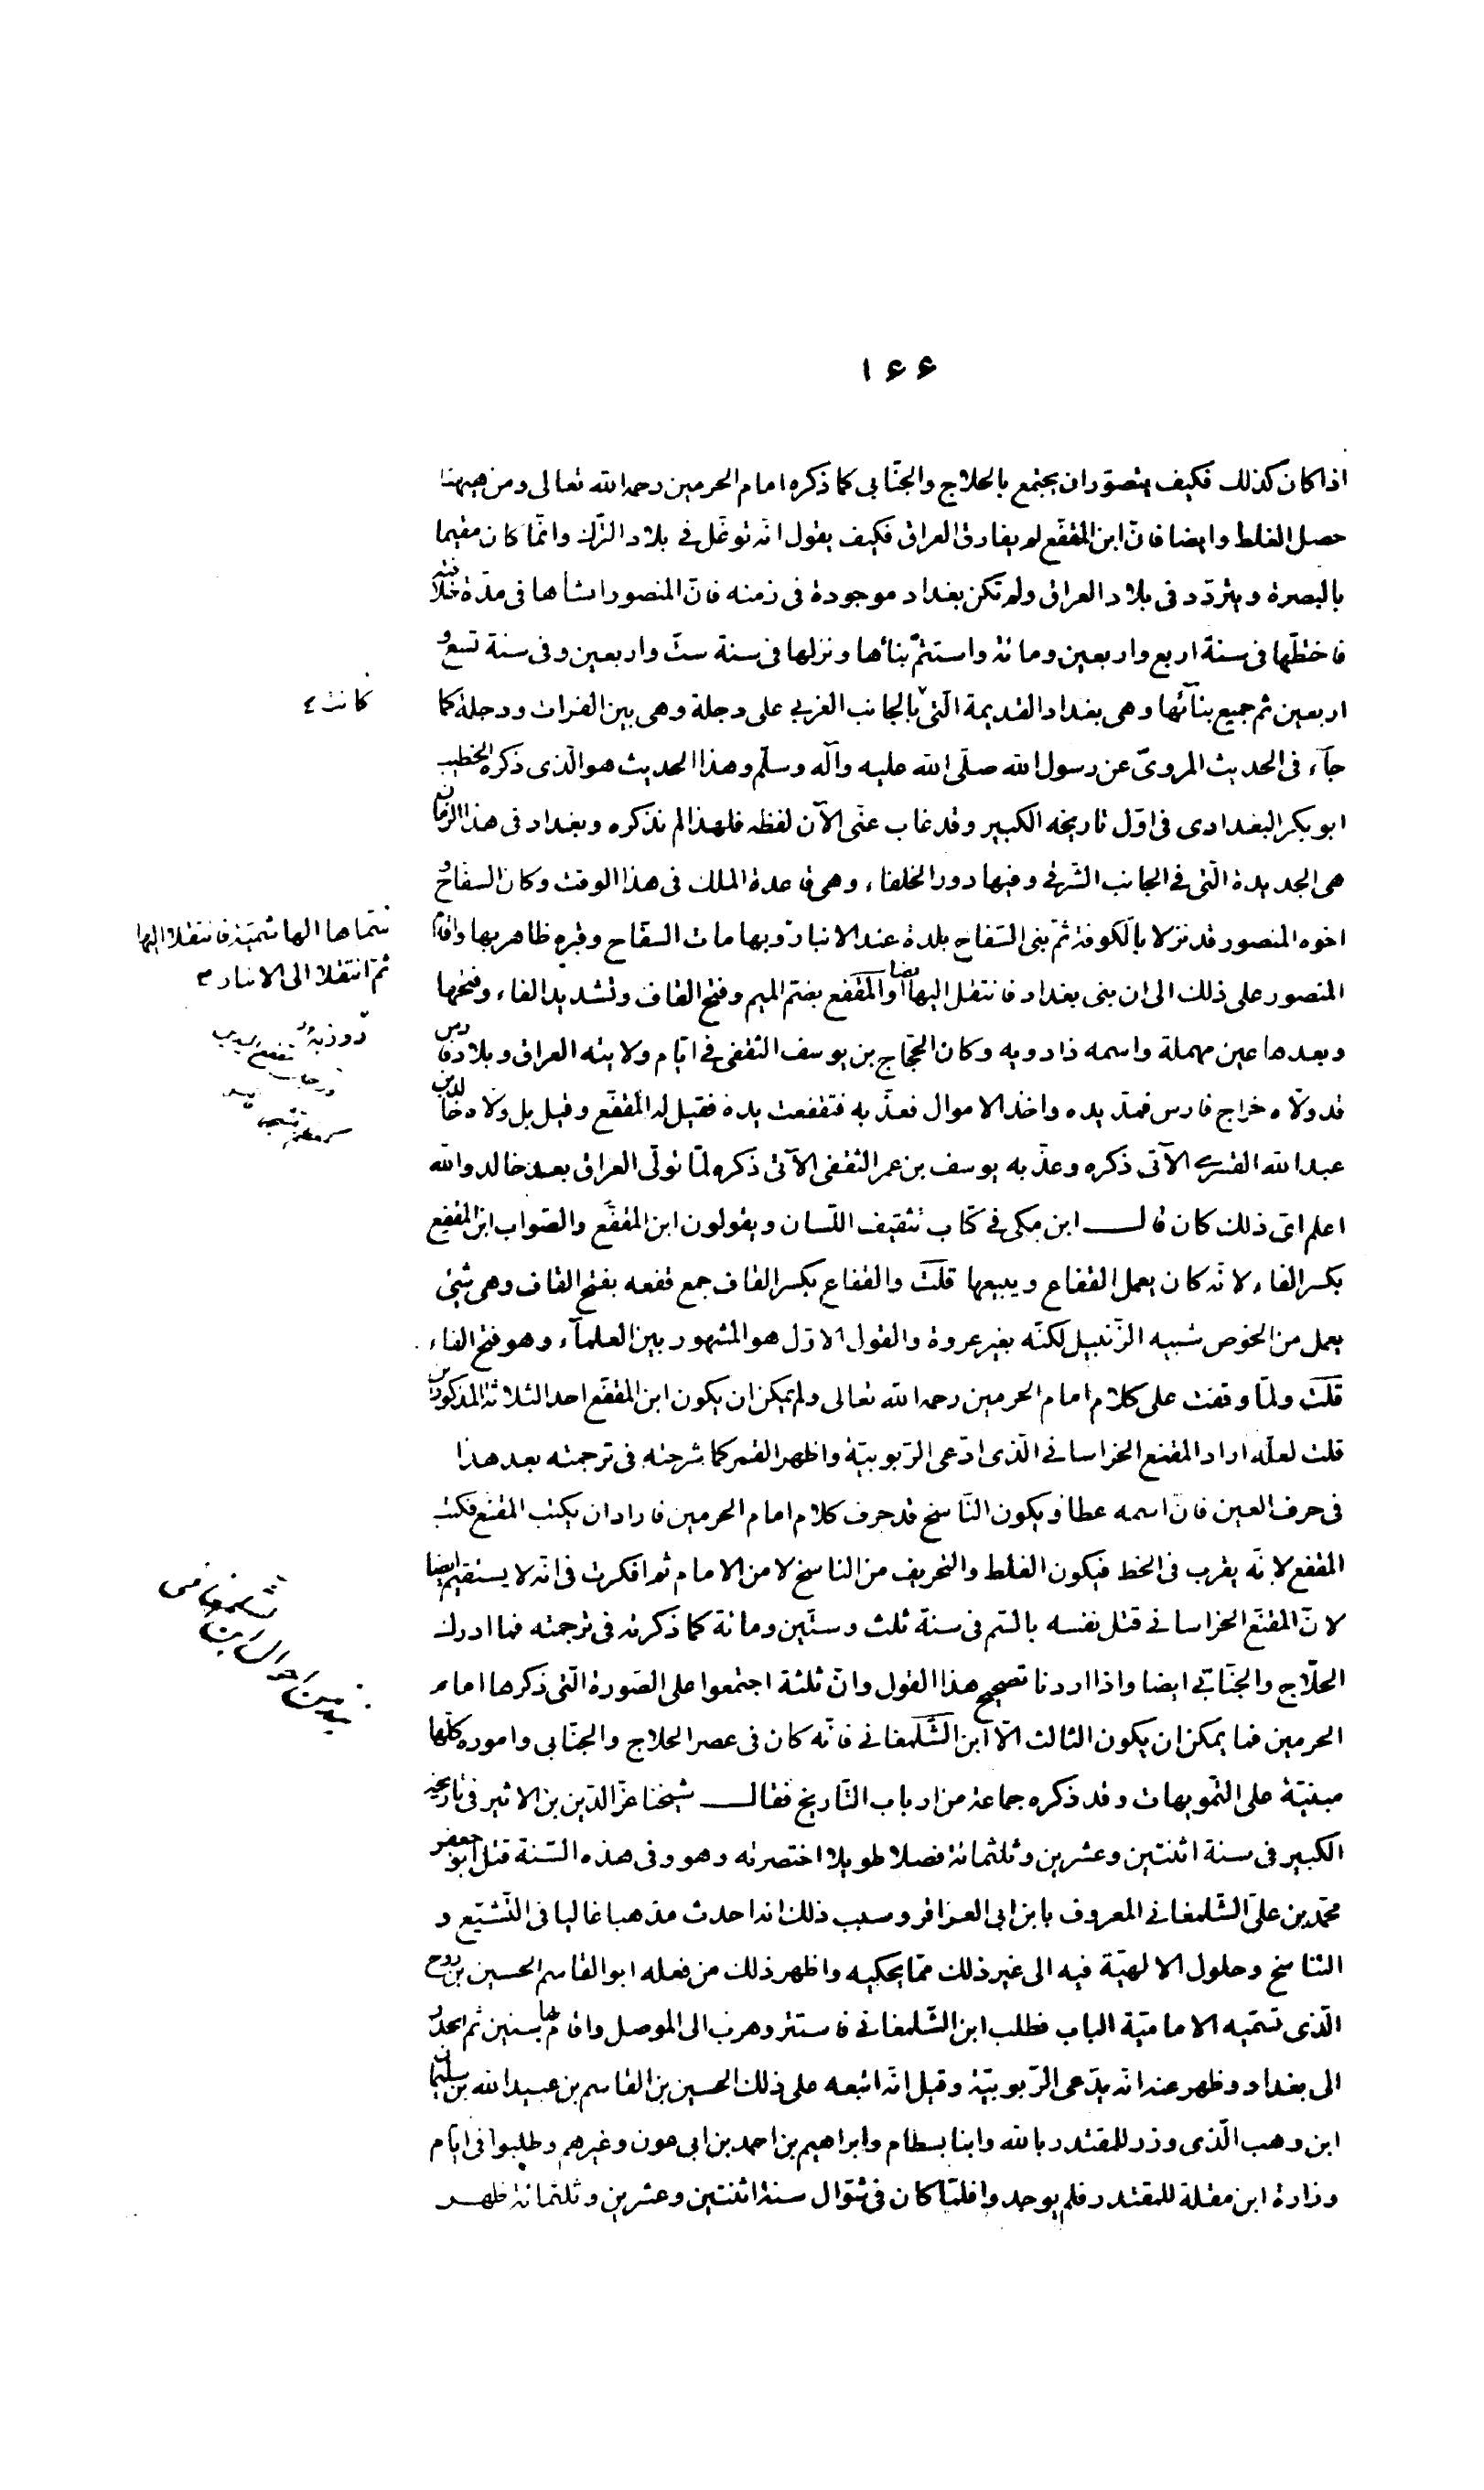 ۱۶۶
اذا كان كذلك فكيف يتصوّر ان يجتمع بالحلاج والجنّابى كما ذكره امام الحرمين رحمه الله تعالى ومن ههنا
حصل الغلط وايضا فانّ ابن المقفّع لم يفارق العراق فكيف يقول انّه توغّل فى بلاد الترّك وانّما كان مقيما
بالبصرة ويتردّد فى بلاد العراق ولم تكن بغداد موجودة فى زمنه فانّ المنصور انشاها فى مدّة خلافته
فاختطّها فى سنة اربع واربعين ومائة واستتمّ بنائها ونزلها فى سنة ستّ واربعين وفى سنة تسع و
اربعين تم جميع بنآئها وهى بغداد القديمة الّتى بالجانب الغربي على دجلة وهى بين الفرات ودجلة كما
كانت
جآء فى الحديث المروىّ عن رسول الله صلّى الله عليه وآله وسلّم وهذا الحديث هو الّذى ذكره الخطيب
ابو بكر البغدادى فى اوّل تاريخه الكبير وقد غاب عنّى الآن لفظه فلهذا لم نذكره وبغداد فى هذا الزمان
هى الجديدة الّتى فى الجانب الشّرقى وفيها دور الخلفاء وهى قاعدة الملك فى هذا الوقت وكان السفاح و
اخوه المنصور قد نزلا بالكوفة ثمّ بنى السّفاح بلدة عند الانبار وبها مات السفّاح وقبره ظاهر بها واقام
سمّاها الهاشميّة فانتقلا اليها
ثمّ انتقلا الى الانبار
المنصور على ذلك الى ان بنى بغداد فانتقل اليها ايضا والمقفع بضمّ الميم وفتح القاف وتشديد الفاء وفتحها
وبعدها عين مهملة واسمه ذادويه وكان الحجّاج بن يوسف الثقفى فى ايّام ولايته العراق وبلاد فارس
قد ولّاه خراج فارس فمدّ يده واخذ الاموال فعذّبه فتقفعت يده فقيل له المقفّع وقيل بل ولاه خالد بن
عبد الله القسرى الآتى ذكره وعذّبه يوسف بن عمر الثقفى الآتى ذكره لمّا تولّى العراق بعد خالد والله
اعلم اىّ ذلك كان قال ابن مكى فى كتاب تثقيف اللّسان ويقولون ابن المقفّع والصّواب ابن المقفع
بكسر الفاء لانّه كان يعمل القفاع ويبيعها قلت والقفاع بكسر القاف جمع قفعه بفتح القاف وهى شئ
يعمل من الخوص شبيه الزّنبيل لكنّه بغير عروة والقول الاوّل هو المشهور بين العلمآء وهو فتح الفاء
قلت ولمّا وقفت على كلام امام الحرمين رحمه الله تعالى ولم يمكن ان يكون ابن المقفّع احد الثلاثة المذكورين
قلت لعلّه اراد المقنع الخراسانى الّذى ادّعى الرّبوبيّة واظهر القمر كما شرحته فى ترجمته بعد هذا
فى حرف العين فانّ اسمه عطا ويكون النّاسخ قد حرف كلام امام الحرمين فاراد ان يكتب المقنع فكتب
المقفع لانّه يقرب فى الخط فيكون الغلط والتحريف من الناسخ لا من الامام ثم افكرت فى انّه لا يستقيم ايضا
لانّ المقنّع الخراسانى قتل نفسه بالسّم فى سنة ثلث وستّين ومائة كما ذكرته فى ترجمته فما ادرك
الحلّاج والجنّابى ايضا واذا اردنا تصحيح هذا القول وانّ ثلثة اجتمعوا على الصّورة الّتى ذكرها امام
الحرمين فما يمكن ان يكون الثالث الّا ابن الشّلمغانى فانّه كان فى عصر الحلاج والجنّابى واموره كلّها
مبنيّة على التّمويهات وقد ذكره جماعة من ارباب التّاريخ فقال شيخنا عزّ الدّين بن الاثير فى تاريخه
الكبير فى سنة اثنتين وعشرين وثلثمائة فصلا طويلا اختصرته وهو وفى هذه السّنة قتل ابو جعفر
محمّد بن علىّ الشّلمغانى المعروف بابن ابى العزاقر وسبب ذلك انه احدث مذهبا غاليا فى التّشيّع و
التناسخ وحلول الالهيّة فيه الى غير ذلك ممّا يحكيه واظهر ذلك من فعله ابو القاسم الحسين بن روح
الّذى تسمّيه الاماميّة الباب فطلب ابن الشّلمغانى فاستتر وهرب الى الموصل واقام بها سنين ثم انحدر
الى بغداد وظهر عنه انّه يدّعى الرّبوبيّة وقيل انّه اتبعه على ذلك الحسين بن القاسم بن عبيد الله بن سليمان
ابن وهب الّذى وزر للمقتدر بالله وابنا بسطام وابراهيم بن احمد بن ابى عون وغيرهم وطلبوا فى ايّام
وزارة ابن مقلة للمقتدر فلم يوجدوا فلمّا كان فى شوّال سنة اثنتين وعشرين وثلثمائة ظهر